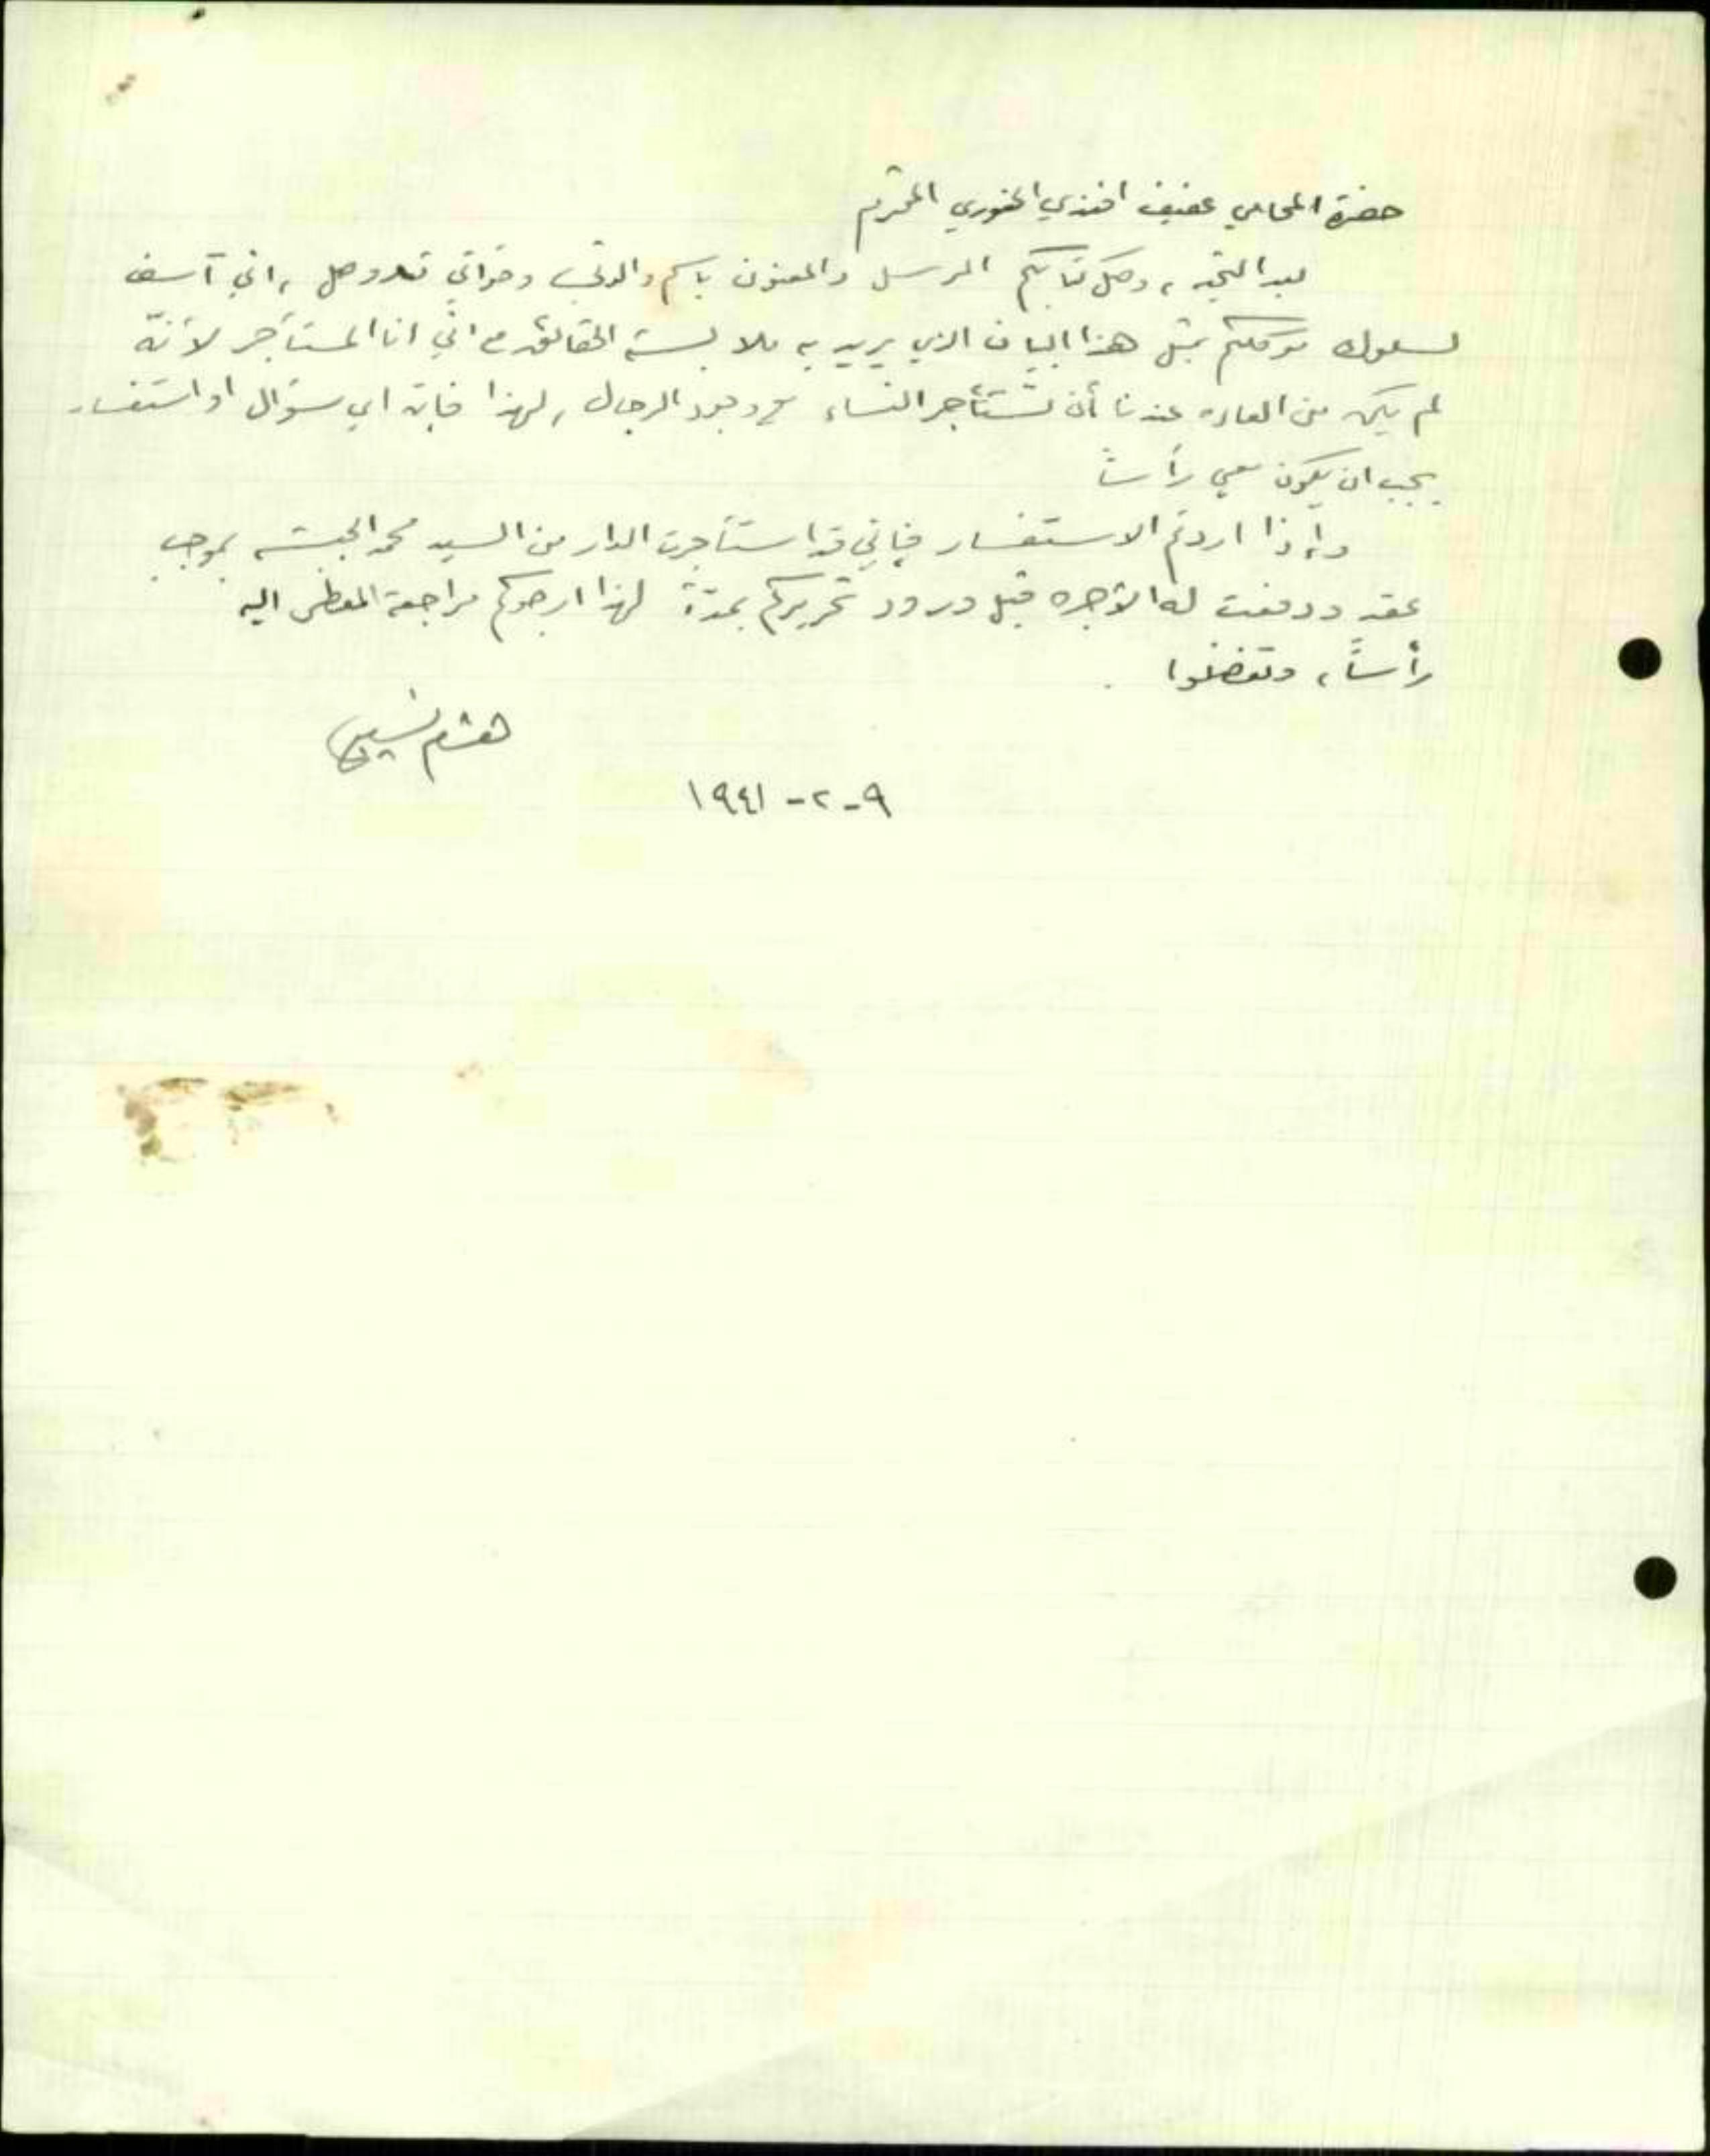 حضرة المحامي عفيف افندي الخوري المحترم
بعد التحية، وصل كتابكم المرسل والمعنون باسم والدتي وخواتي قد وصل، اني آسف
لسلوك موكلكم بمثل هذا البيان الذي يريد به ملابسة الحقائق مع اني انا المستأجر لأنّه
لم يكن من العاده عندنا أن تستأجر النساء مع وجود الرجال، لهذا فان اي سؤال او استفسار
يجب ان يكون معي رأساً
واذا اردتم الاستفسار فإني قد استأجرت الدار من السيد محمد بموجب
عقد ودفعت له الأجره قبل ورود تحريركم بمدّة لهذا ارجوكم مراجعة المعطى اليه
رأساً، وتفضلوا .
٩-٢-١٩٤١